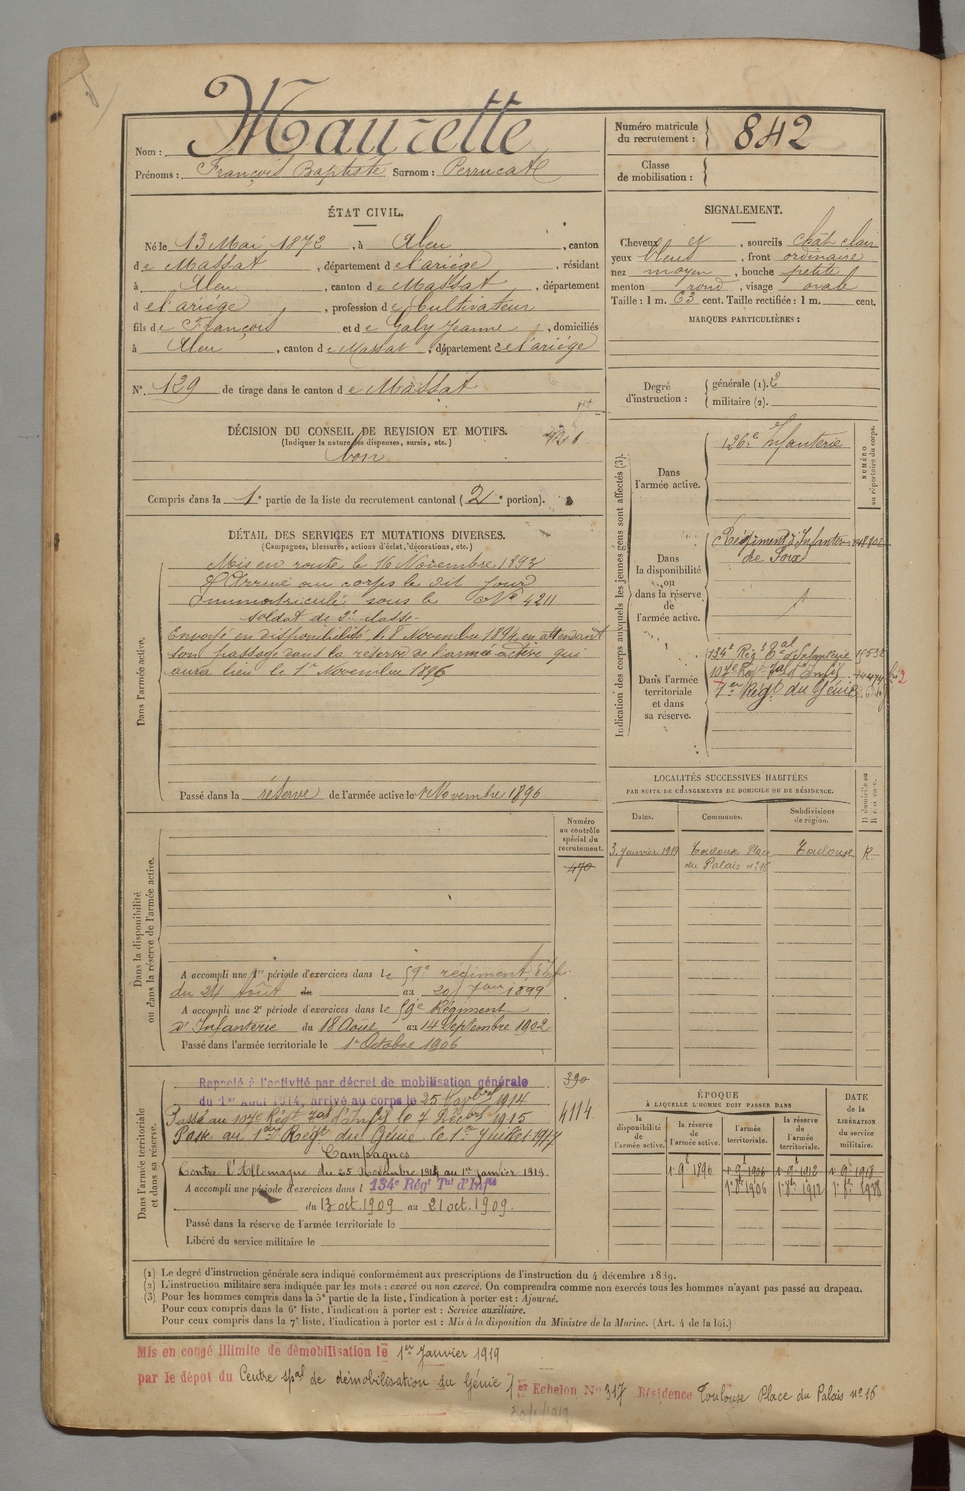 Nom : Maurette
Prénoms : François Baptiste Surnom : Perrucat
ÉTAT CIVIL.
Né le 13 Mai 1872, à Aleu, canton
de Massat, département de l'ariége, résidant
à Aleu, canton de Massat, département
de l'ariége, profession de Cultivateur
fils de François et de Galy Jeanne, domiciliés
à Aleu, canton de Massat, département de l'ariége
N° 129 de tirage dans le canton de Massat
DÉCISION DU CONSEIL DE REVISION ET MOTIFS.
(Indiquer la nature des dispenses, sursis, etc.)
bon
Compris dans la 1e partie de la liste du recrutement cantonal (2e portion).
DÉTAIL DES SERVICES ET MUTATIONS DIVERSES.
(Campagnes, blessures, actions d'éclat, décorations, etc.)
Dans l'armée active.
Mis en route le 16 Novembre 1893
Arrivé au corps le dit jour
Immatriculé sous le N° 4211
soldat de 2e classe
Envoyé en disponibilité le 8 Novembre 1894 en attendant
son passage dans la réserve de l'armée active qui
aura lieu le 1er Novembre 1896
Passé dans la réserve de l'armée active le 1 Novembre 1896
Dans la disponibilité
ou dans la réserve de l'armée active.
Numéro
au contrôle
spécial du
recrutement.
470
A accompli une 1re période d'exercices dans le 59e régiment d'Inf.
du 24 Août au 20 7bre 1899
A accompli une 2e période d'exercices dans le 59e Régiment
d'Infanterie du 18 Août au 14 Septembre 1902
Passé dans l'armée territoriale le 1er Octobre 1906
Dans l'armée territoriale
et dans sa réserve.
390
4114
Rappelé à l'activité par décret de mobilisation générale
du 1er Août 1914, arrivé au corps le 25 Novbre 1914
Passé au 107e Régt Tal d'Infie le 7 Décbre 1915
Passé au 1er Régt du Génie le 1er Juillet 1917
Campagnes
Contre l'Allemagne du 25 Novembre 1914 au 1er janvier 1919.
A accompli une période d'exercices dans l 134e Régt Tal d'Infie
du 13 oct. 1909 au 21 oct. 1909.
Passé dans la réserve de l'armée territoriale le
Libéré du service militaire le
Numéro matricule
du recrutement : 842
Classe
de mobilisation :
SIGNALEMENT.
Cheveux et, sourcils chât clair
yeux bleus, front ordinaire
nez moyen, bouche petite
menton rond, visage ovale
Taille : 1 m. 63 cent. Taille rectifiée : 1 m. cent.
MARQUES PARTICULIÈRES :
Degré
d'instruction :
générale (1). 2
militaire (2).
Indication des corps auxquels les jeunes gens sont affectés (3).
NUMÉRO
au répertoire du corps.
Dans
l'armée active.
126e Infanterie
Dans
la disponibilité
ou
dans la réserve
de
l'armée active.
Régiment d'Infanterie
de Foix
Dans l'armée
territoriale
et dans
sa réserve.
134e Régt Tal d'Infanterie
107e Regt Tal d'Infie
1er Régt du Génie
LOCALITÉS SUCCESSIVES HABITÉES
PAR SUITE DE CHANGEMENTS DE DOMICILE OU DE RÉSIDENCE.
Dates. Communes. Subdivisions
de région.
3. Janvier 1919 Toulouse Place Toulouse R
du Palais n° 16
ÉPOQUE
À LAQUELLE L'HOMME DOIT PASSER DANS
DATE
de la
LIBÉRATION
du service
militaire.
la
disponibilité
de
l'armée active.
la réserve
de
l'armée active.
l'armée
territoriale.
la réserve
de
l'armée
territoriale.
1er 9bre 1896 1er 9bre 1906 1er 9bre 1912 1er 9bre 1918
1er 8bre 1906 1er 8bre 1912 1er 8bre 1918
(1) Le degré d'instruction générale sera indiqué conformément aux prescriptions de l'instruction du 4 décembre 1889.
(2) L'instruction militaire sera indiquée par les mots : exercé ou non exercé. On comprendra comme non exercés tous les hommes n'ayant pas passé au drapeau.
(3) Pour les hommes compris dans la 5e partie de la liste, l'indication à porter est : Ajourné.
Pour ceux compris dans la 6e liste, l'indication à porter est : Service auxiliaire.
Pour ceux compris dans la 7e liste, l'indication à porter est : Mis à la disposition du Ministre de la Marine. (Art. 4 de la loi.)
Mis en congé illimité de démobilisation le 1er Janvier 1919
par le dépôt du Centre spal de démobilisation du Génie 1er Echelon N° 317 Résidence Toulouse Place du Palais n° 16